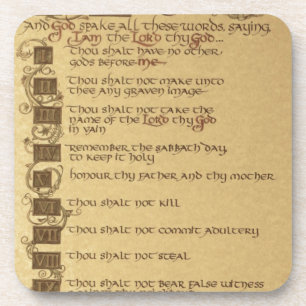 and God spake all these words, saying,
I am the Lord thy God...
I Thou shalt have no other
gods before me
II Thou shalt not make unto
thee any graven image
III Thou shalt not take the
name of the Lord thy God
in vain
IV remember the sabbath day,
to keep it holy
V honour thy father and thy mother
VI Thou shalt not kill
VII Thou shalt not commit adultery
VIII Thou shalt not steal
IX Thou shalt not bear false witness